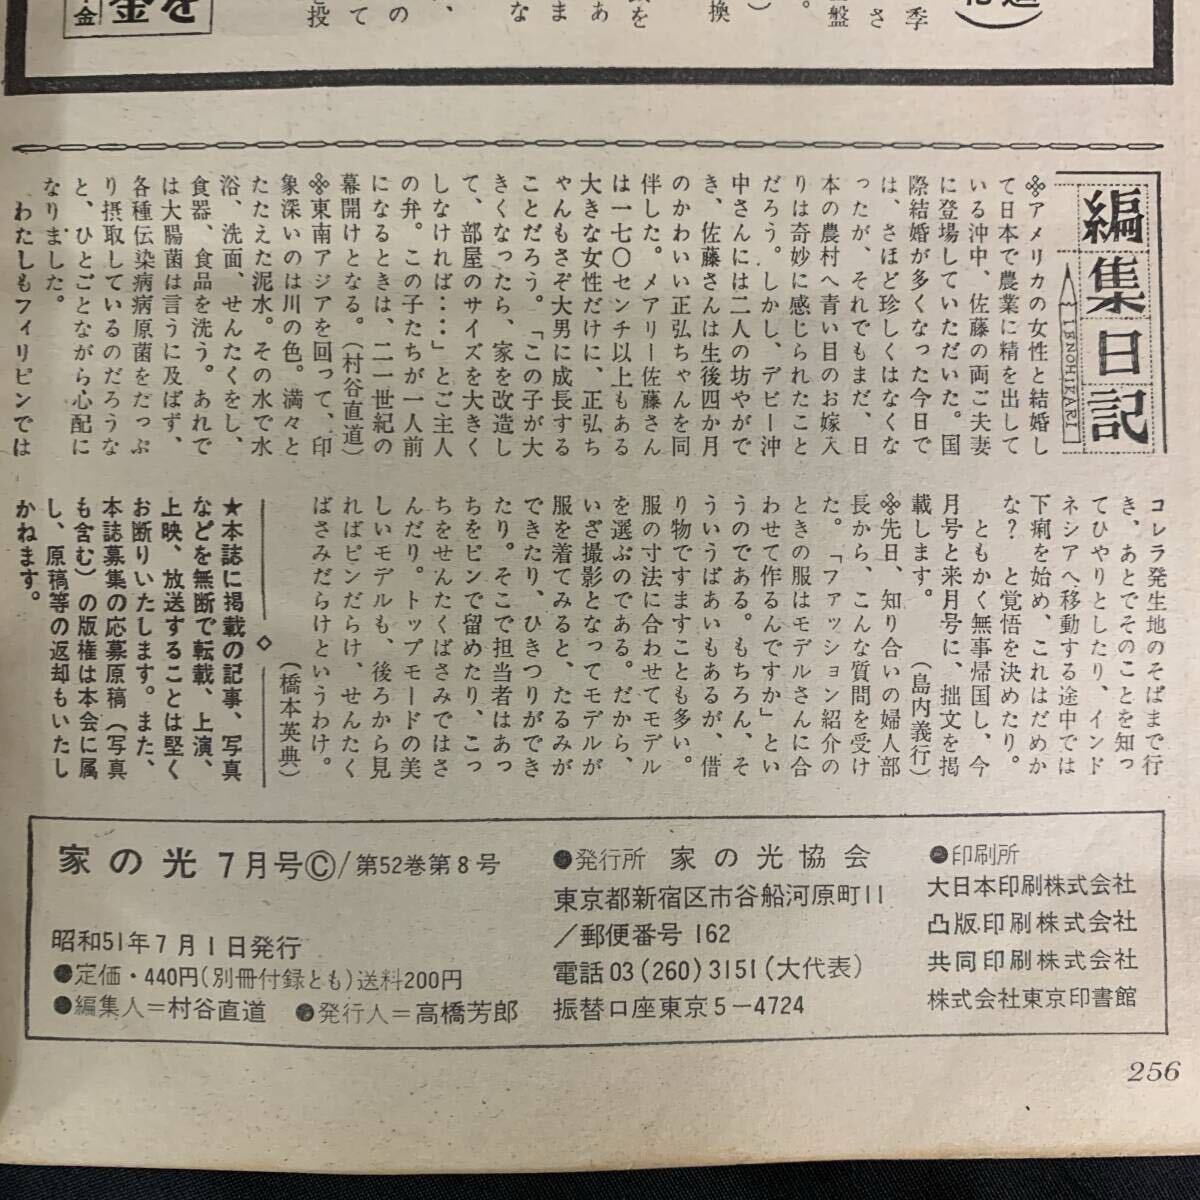 編集日記
IENOHIKARI
※アメリカの女性と結婚し
て日本で農業に精を出して
いる沖中、佐藤の両ご夫妻
に登場していただいた。国
際結婚が多くなった今日で
は、さほど珍しくはなくな
ったが、それでもまだ、日
本の農村へ青い目のお嫁入
りは奇妙に感じられたこと
だろう。しかし、デビー沖
中さんには二人の坊やがで
き、佐藤さんは生後四か月
のかわいい正弘ちゃんを同
伴した。メアリー佐藤さん
は一七〇センチ以上もある
大きな女性だけに、正弘ち
ゃんもさぞ大男に成長する
ことだろう。「この子が大
きくなったら、家を改造し
て、部屋のサイズを大きく
しなければ‥‥」とご主人
の弁。この子たちが一人前
になるときは、二一世紀の
幕開けとなる。（村谷直道）
※東南アジアを回って、印
象深いのは川の色。満々と
たたえた泥水。その水で水
浴、洗面、せんたくをし、
食器、食品を洗う。あれで
は大腸菌は言うに及ばず、
各種伝染病病原菌をたっぷ
り摂取しているのだろうな
と、ひとごとながら心配に
なりました。
わたしもフィリピンでは
コレラ発生地のそばまで行
き、あとでそのことを知っ
てひやりとしたり、インド
ネシアへ移動する途中では
下痢を始め、これはだめか
な？　と覚悟を決めたり。
ともかく無事帰国し、今
月号と来月号に、拙文を掲
載します。　（島内義行）
※先日、知り合いの婦人部
長から、こんな質問を受け
た。「ファッション紹介の
ときの服はモデルさんに合
わせて作るんですか」とい
うのである。もちろん、そ
ういうばあいもあるが、借
り物ですますことも多い。
服の寸法に合わせてモデル
を選ぶのである。だから、
いざ撮影となってモデルが
服を着てみると、たるみが
できたり、ひきつりができ
たり。そこで担当者はあっ
ちをピンで留めたり、こっ
ちをせんたくばさみではさ
んだり。トップモードの美
しいモデルも、後ろから見
ればピンだらけ、せんたく
ばさみだらけというわけ。
（橋本英典）
★本誌に掲載の記事、写真
などを無断で転載、上演、
上映、放送することは堅く
お断りいたします。また、
本誌募集の応募原稿（写真
も含む）の版権は本会に属
し、原稿等の返却もいたし
かねます。
家の光 7月号Ⓒ/第52巻第8号
昭和51年7月1日発行
●定価・440円(別冊付録とも)送料200円
●編集人＝村谷直道　●発行人＝高橋芳郎
●発行所　家の光協会
東京都新宿区市谷船河原町11
/郵便番号 162
電話 03 (260) 3151 (大代表)
振替口座東京5-4724
●印刷所
大日本印刷株式会社
凸版印刷株式会社
共同印刷株式会社
株式会社東京印書館
256